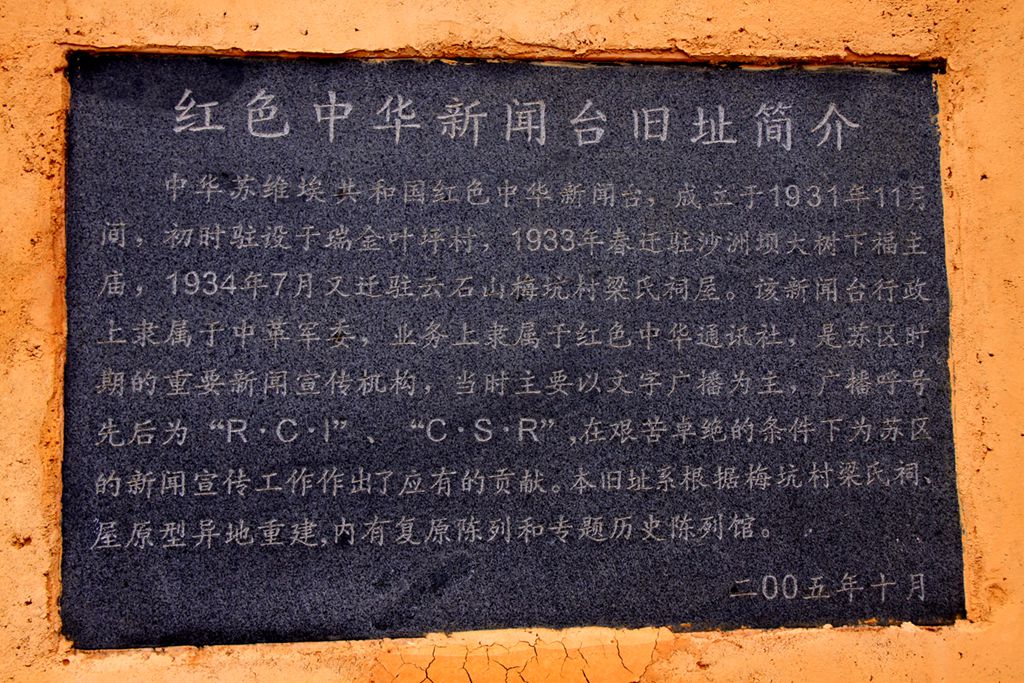 红色中华新闻台旧址简介
中华苏维埃共和国红色中华新闻台，成立于1931年11月
间，初时驻设于瑞金叶坪村，1933年春迁驻沙洲坝大树下福主
庙，1934年7月又迁驻云石山梅坑村梁氏祠屋。该新闻台行政
上隶属于中革军委，业务上隶属于红色中华通讯社，是苏区时
期的重要新闻宣传机构，当时主要以文字广播为主，广播呼号
先后为“R·C·I”、“C·S·R”,在艰苦卓绝的条件下为苏区
的新闻宣传工作作出了应有的贡献。本旧址系根据梅坑村梁氏祠、
屋原型异地重建,内有复原陈列和专题历史陈列馆。
二00五年十月